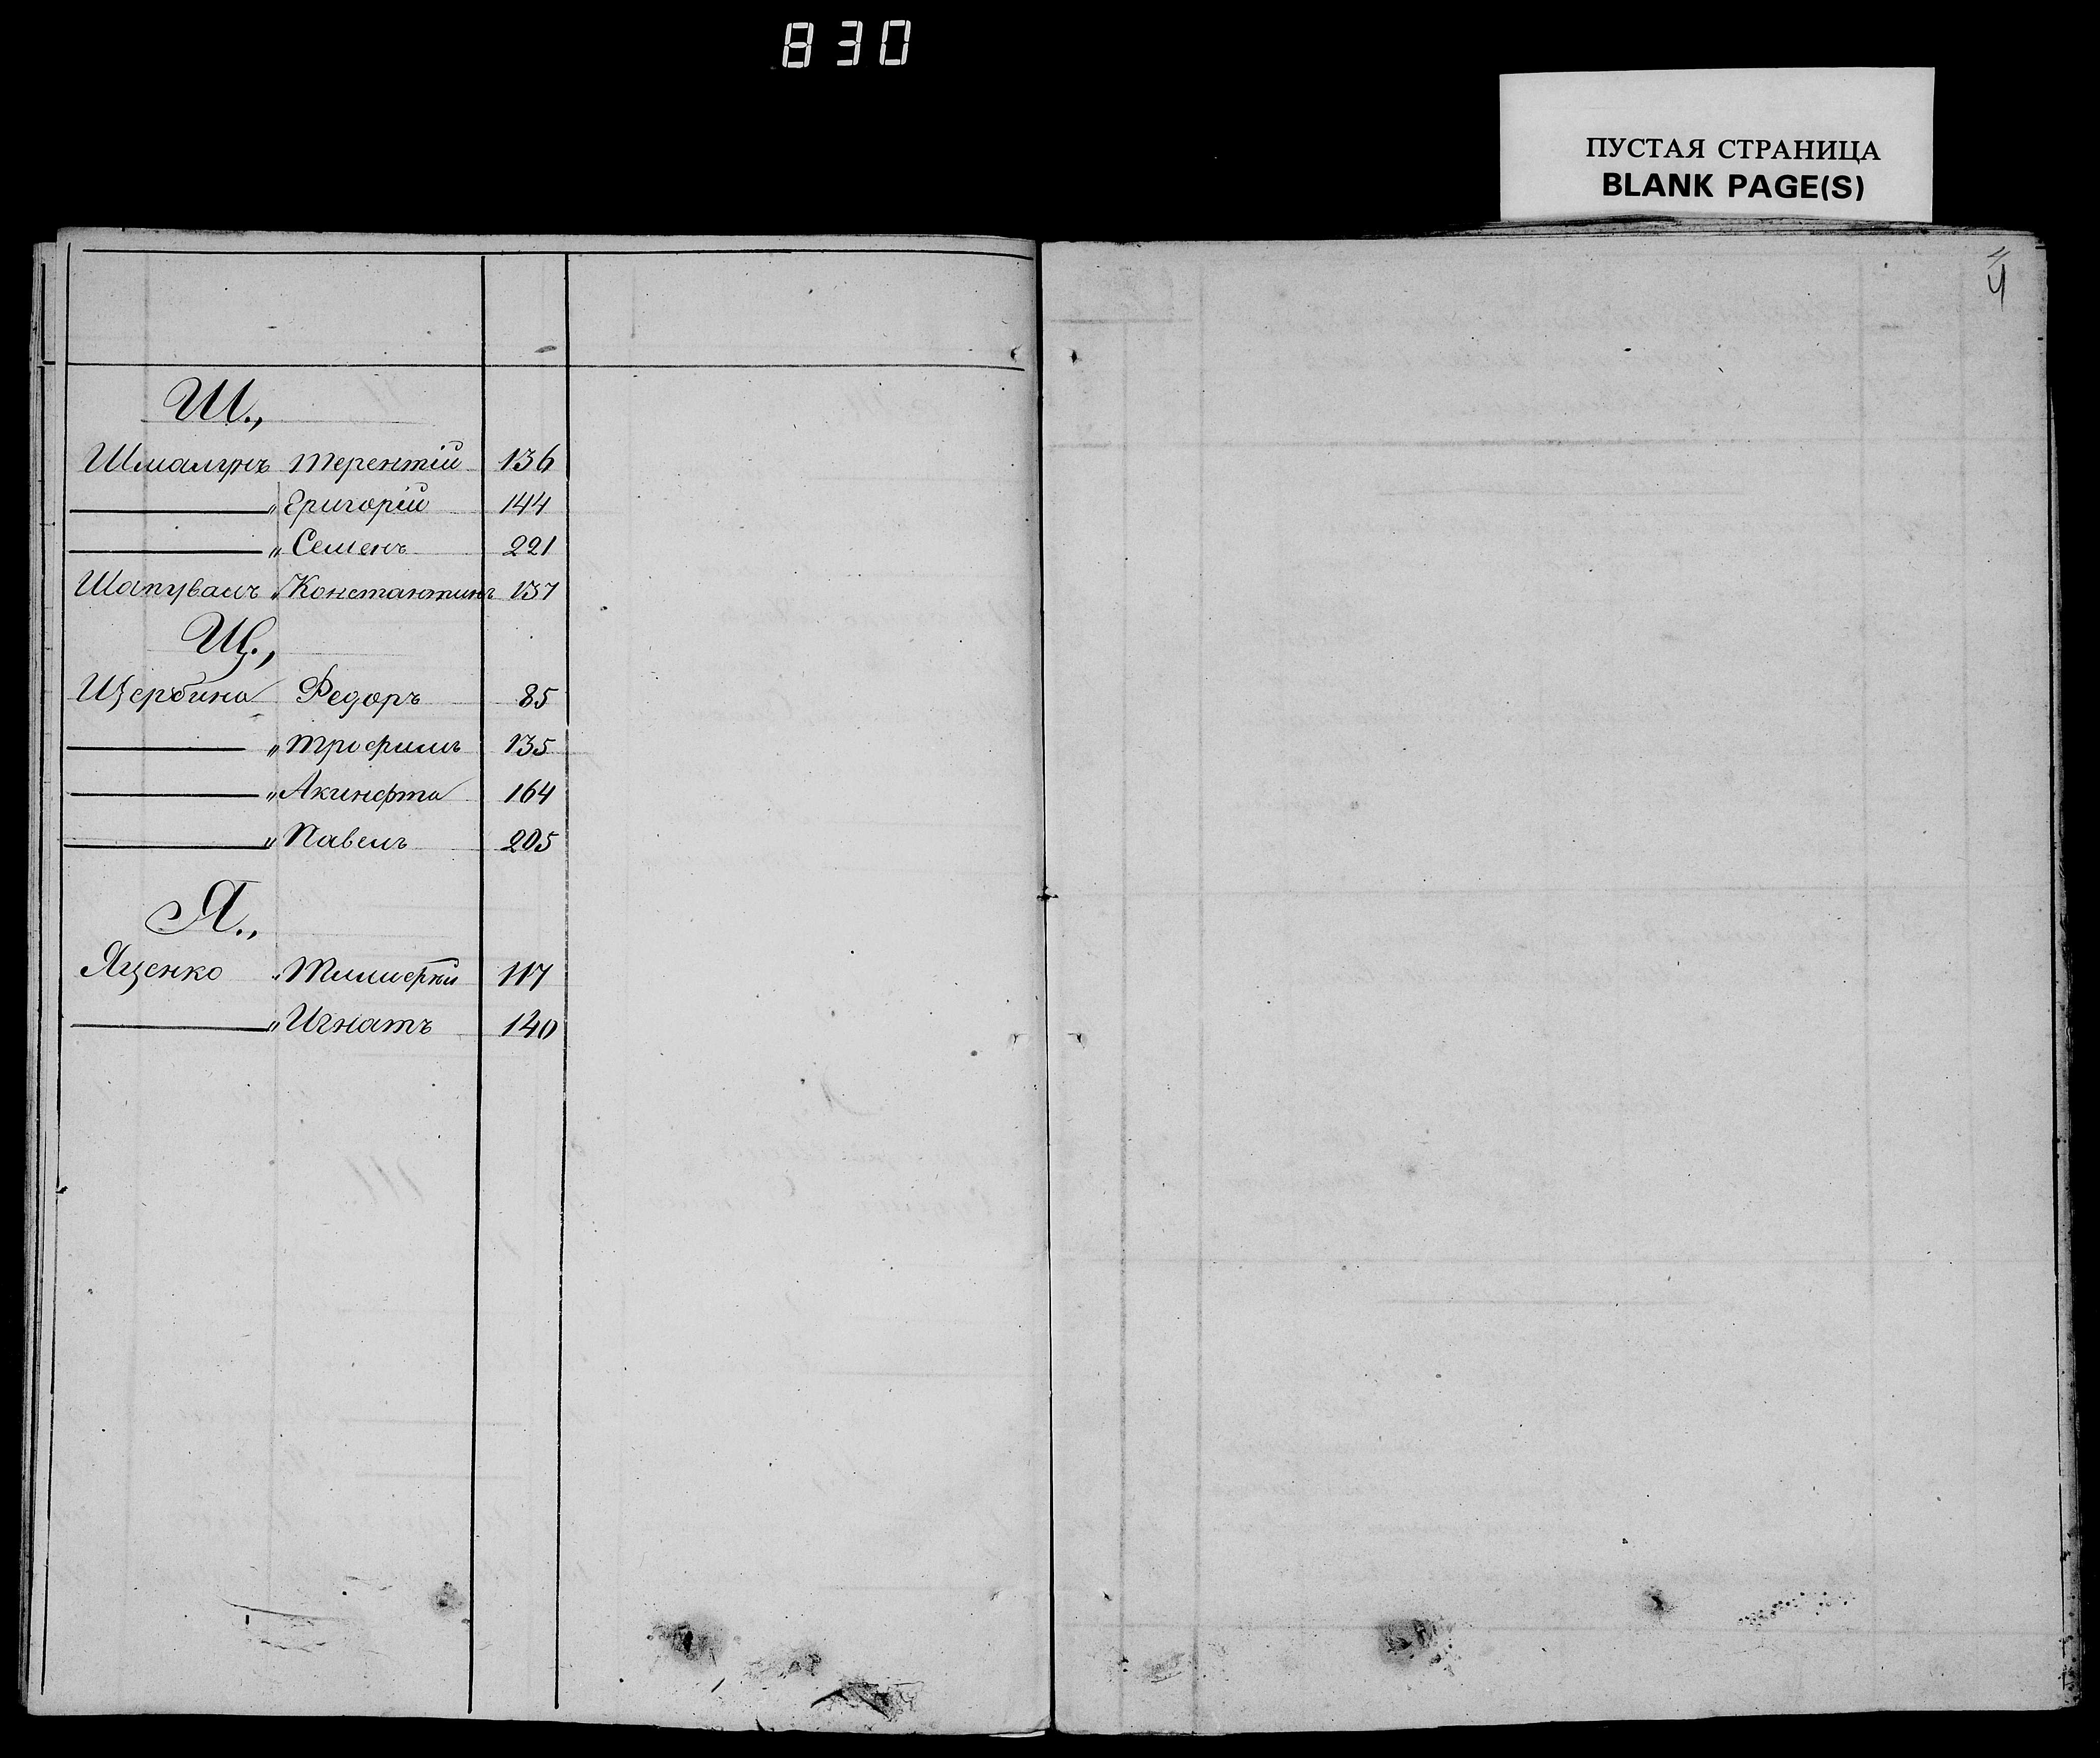 830
ПУСТАЯ СТРАНИЦА
BLANK PAGE(S)
4
Ш.,
Шмалунъ Терентій 136
" Григорій 144
" Семенъ 221
Шапувалъ " Константинъ 137
Щ.,
Щербина Федоръ 85
" Трофимъ 135
" Акинфта 164
" Павелъ 205
Я.,
Яценко " 117
" Игнатъ 140